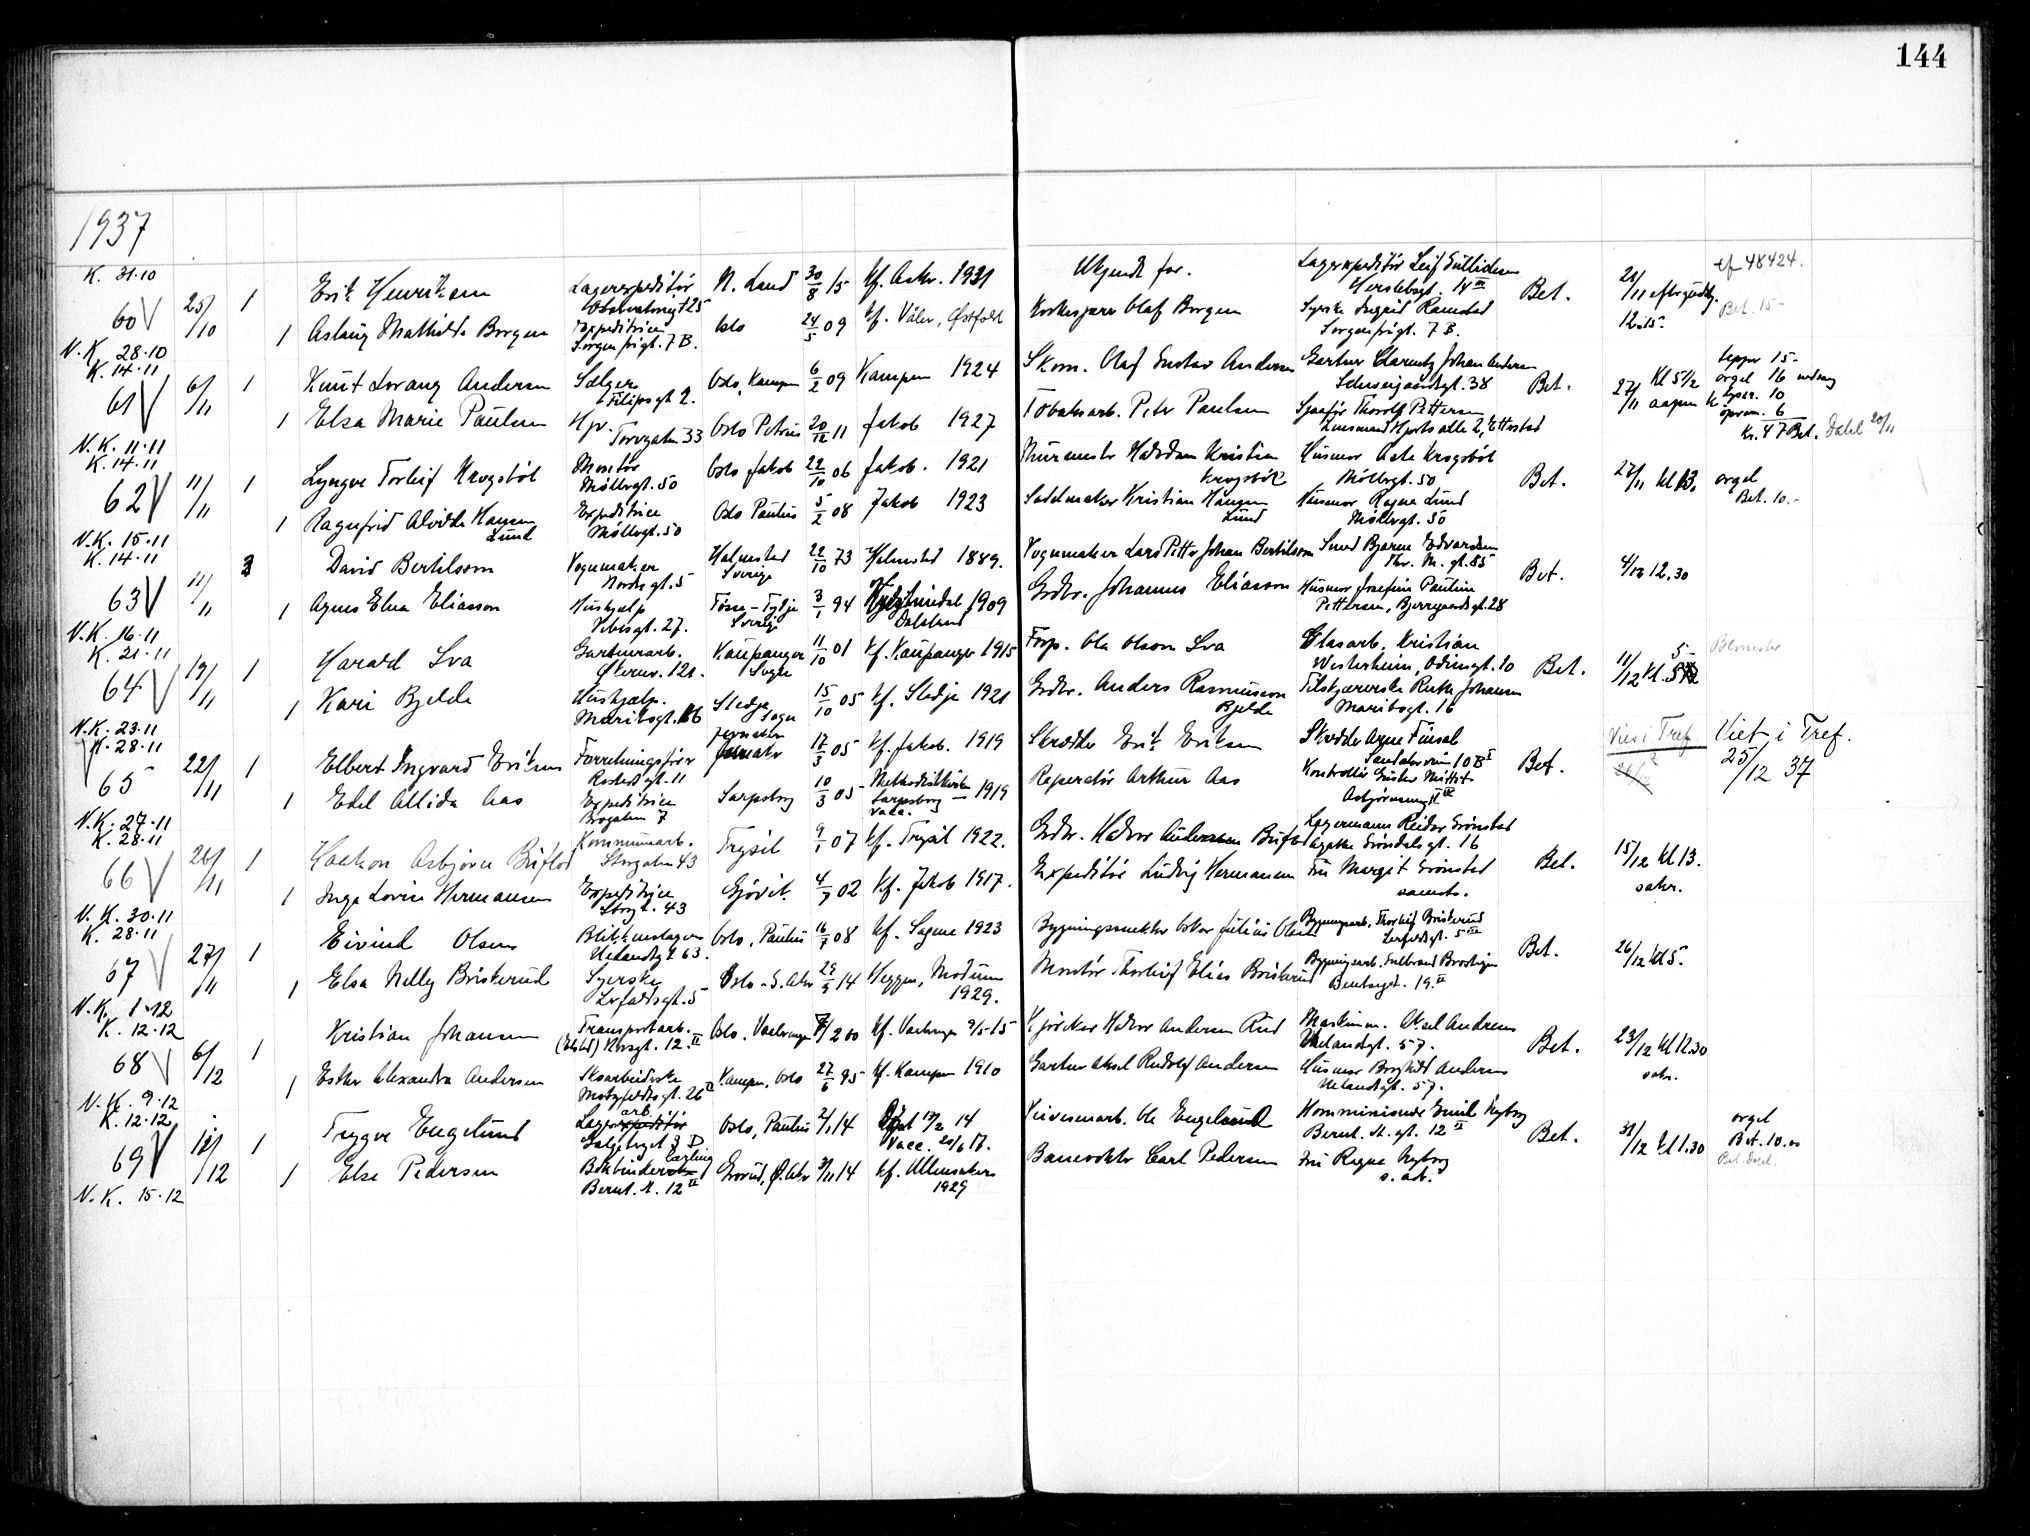 144
1937
K. 31.10
60 25/10 1 Erik Henriksen Lagerexpeditør N. Land 30/8 15 kf. Askr. 1931 Ukjendt far. Lagerxpeditør Leif Gullidsen Bet. tlf 48424.
1 Aslaug Mathilde Borgen Expeditrice Sorgenfrigt. 7 B. Oslo 24/5 09 kf. Våler, Østfold Olaf Borgen Syerske Ingrid Ramstad Sorgenfrigt. 7 B. 12.15. Bet. 15-
N.K. 28.10
K. 14.11
61 6/11 1 Knut Lorang Andersen Sælger Filipsgt 2. Oslo, Kampen 6/2 09 Kampen 1924 Olaf Gustav Andersen Gartner Clarentz Johan Andersen Schweigaardsgt. 38 Bet. 27/11 Kl 5 1/2 tepper 15- orgel 16 lyser. 10
1 Elsa Marie Paulsen Torvgaten 33 Oslo Petrus 20/12 11 Jakob 1927 Tobaksarb. Petr Paulsen Sjaafør Thorolf Pettersen 6 Kr. 47 Bet. Dahl 20/11
N.K. 11.11
K. 14.11
62 11/11 1 Lyngve Torleif Krogsbøl Montør Møllergt. 50 Oslo Jakob 22/10 06 Jakob. 1921 Murmester Kristian Krogsbøl Husmor Krogsbøl Møllergt. 50 Bet. 27/11 kl 13. orgel Bet. 10.-
1 Ragnfrid Alvilde Hansen Lund Expeditrice Møllergt. 50 Oslo Paulus 5/2 08 Jakob 1923 Sadelmaker Kristian Hansen Lund Husmor Ragna Lund Møllergt. 50
N.K. 15.11
K. 14.11
63 11/11 David Bertilsson Vognmaker Nordregt. 5 Halmstad Sverige 22/10 73 Halmstad 1889. Vognmaker Lars Petter Johan Bertilsson Smed Bjarne Edvardsen Thr. M. gt. 85 Bet. 4/12 12.30
1 Agnes Elna Eliasson Hushjelp Vibesgt. 27. Sverige 3/1 94 1909 Dalsland Grdbr. Johannes Eliasson Husmor Josefine Pauline Pettersen, Bjerregaardsgt. 28
N.K. 16.11
K. 21.11
64 19/11 1 Harald Sva Gartnerarb. Økernv. 121. Kaupanger Sogn 11/10 01 kf. Kaupanger 1915 Forp. Ola Olson Sva Glasarb. Kristian Westerheim, Odinsgt. 10 Bet. 11/12 kl. 5- Blomster
1 Kari Bjelde Hushjælp. Maritsgt. 16 Sledje Sogn 15/10 05 kf. Sledje 1921 Grdbr. Anders Rasmussen Bjelde Tilskjærerske Ruth Johansen Maritsgt. 16
N.K. 23.11
K. 28.11
65 22/11 1 Elbert Ingvard Eriksen Forretningsfører Rostedsgt. 11 17/3 05 kf. Jakob. 1919 Skrædder Erik Eriksen Skrædder Arne Finsal Sandakerveien 108 I Bet. Vies i Tref. Viet i Tref. 25/12 37
1 Edel Allida Aas Expeditrice Brogaten 7 Sarpsborg 10/3 05 Methodistkirken Sarpsborg 1919 Vacc. Reperatør Arthur Aas Kontrollør
N.K. 27.11
K. 28.11
66 26/11 1 Haakon Asbjørn Buflod Kommunearb. Storgaten 43 Trysil 9/1 07 kf. Trysil 1922. Grdbr. Halvor Andersen Buflod Lagermann Reidar Grønstad Agathe Grøndalsgt. 16 Bet. 15/12 kl 13. sakr.
1 Inga Lovise Hermansen Expeditrice Storgt. 43 Gjøvik 4/7 02 kf. Jakob 1917. Expeditør Ludvig Hermansen Fru Margit Grønstad samest.
N.K. 30.11
K. 28.11
67 27/11 1 Eivind Olsen Blikkenslager Uelandsgt 63. Oslo, Paulus 16/7 08 kf. Sagene 1923 Bygningssnekker Oskar Julius Olsen Bygningsarb. Thorleif Briskerud Lerfaldsgt. 5 III Bet. 26/12 kl 5.
1 Elsa Nelly Briskerud Syerske Lerfaldsgt. 5 Oslo - G. Aker 29/3 14 Heggen, Modum 1929. Montør Thorleif Elias Briskerud Bygningsarb. Gulbrand Bentsegt. 19. II
N.K. 1-12
K. 12.12
68 6/12 1 Kristian Johansen Transportarb. 12. II Oslo. Vaalerenga 7/2 00 kf. Vaalerengen 9/5-15 Kjørekar Halvor Andersen Rud Maskinm. Aksel Andresen Uelandsgt. 57. Bet. 23/12 kl 12.30 sakr.
1 Esther Alexandra Andersen Skoarbeiderske Motzfeldtsgt. 26 II Kampen, Oslo 27/6 95 kf. Kampen 1910 Gartner Aksel Rudolf Andersen Husmor Borghild Andersen Uelandsgt. 57.
N.K. 9.12
K. 12.12
69 12/12 1 Trygve Engelund Lagerexpeditør arb. Oslo, Paulus 2/1 14 Døpt 12/2 14 Vacc. 20/6 17. Ole Engelund Kommisionær Emil Nyborg Bernt. A. gt. 12 II Bet. 31/12 kl 1.30 orgel Bet. 10.00
1 Else Pedersen Bokbinder lærling Bernt. A. 12 II Grorud, Ø. Aker 3/11 14 kf. Ullensaker 1929 Banevokter Carl Pedersen Fru Ragna Nyborg s. adr.
N.K. 15.12